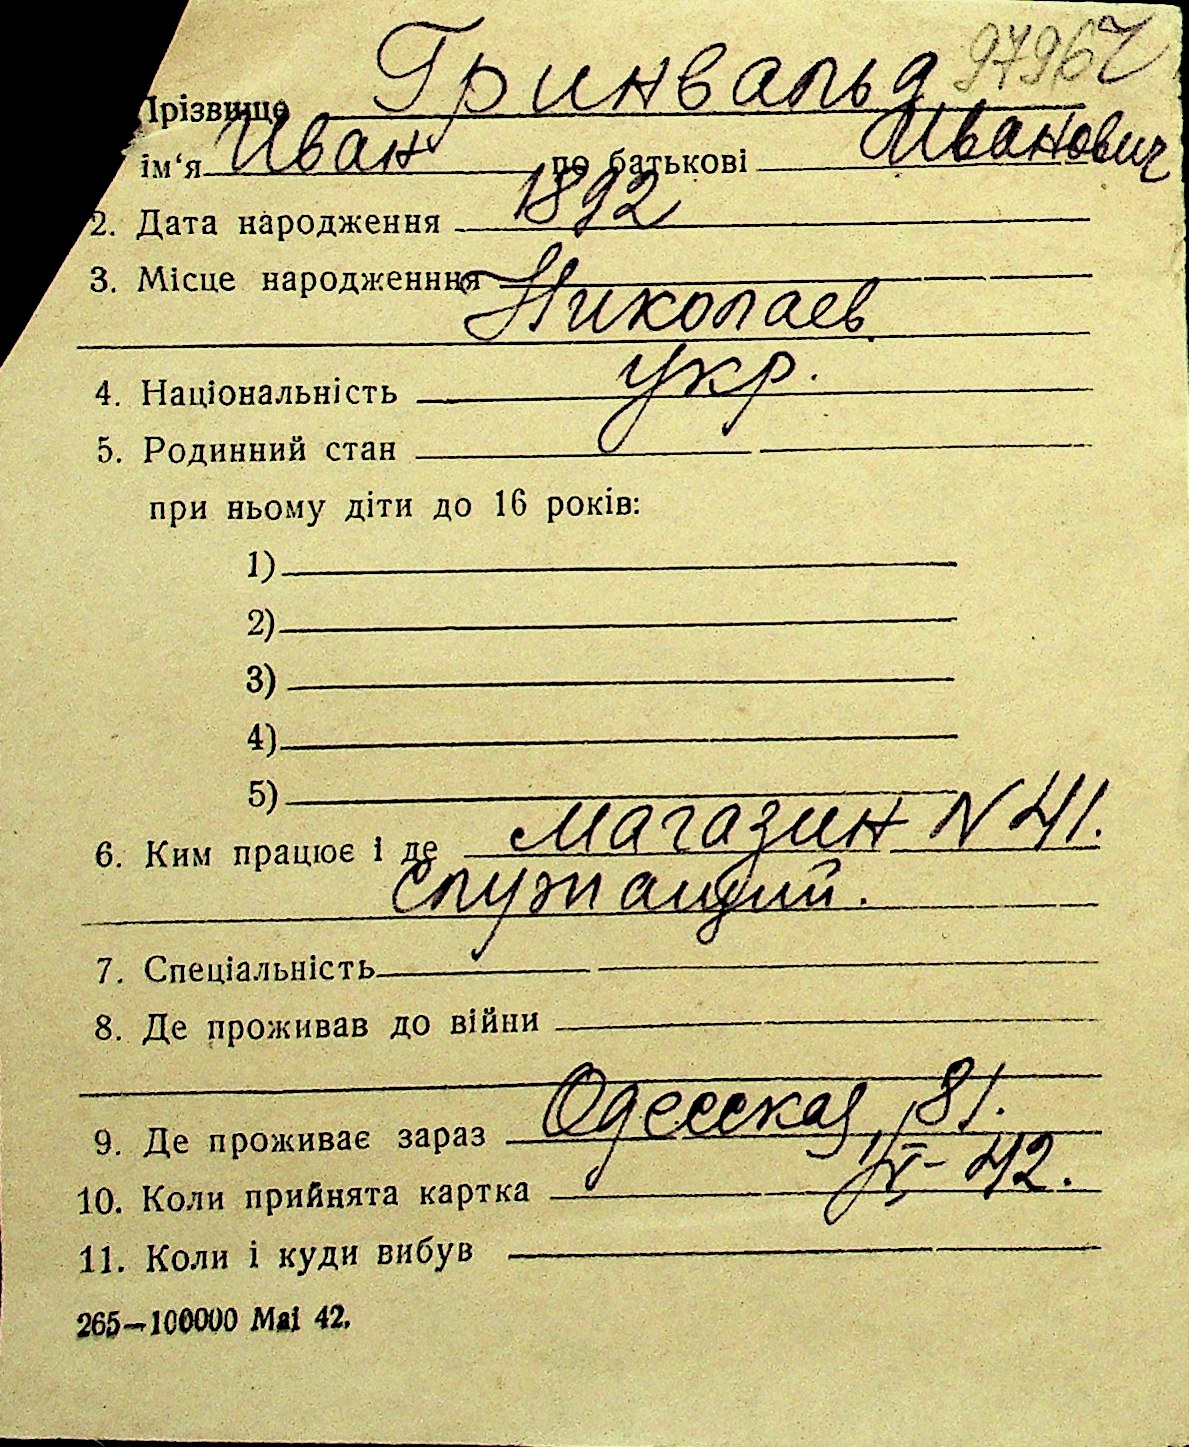 Гринвальд 97967
Прізвище
ім‘я Иван по батькові Иванович
2. Дата народження 1892
3. Місце народженння
Николаев
4. Національність укр.
5. Родинний стан
при ньому діти до 16 років:
1)
2)
3)
4)
5)
6. Ким працює і де магазин N 41.
служащий.
7. Спеціальність
8. Де проживав до війни
9. Де проживає зараз Одесская, 81.
10. Коли прийнята картка 42.
11. Коли і куди вибув
265—100000 Маі 42.